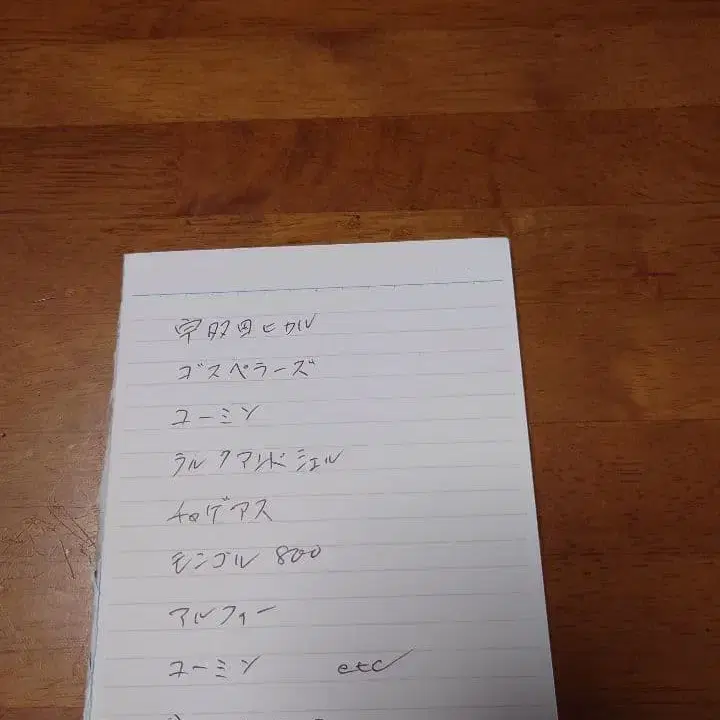 宇多田ヒカル
ゴスペラーズ
ユーミン
ラルクアンドシェル
チャゲアス
モンゴル 800
アルフィー
ユーミン etc